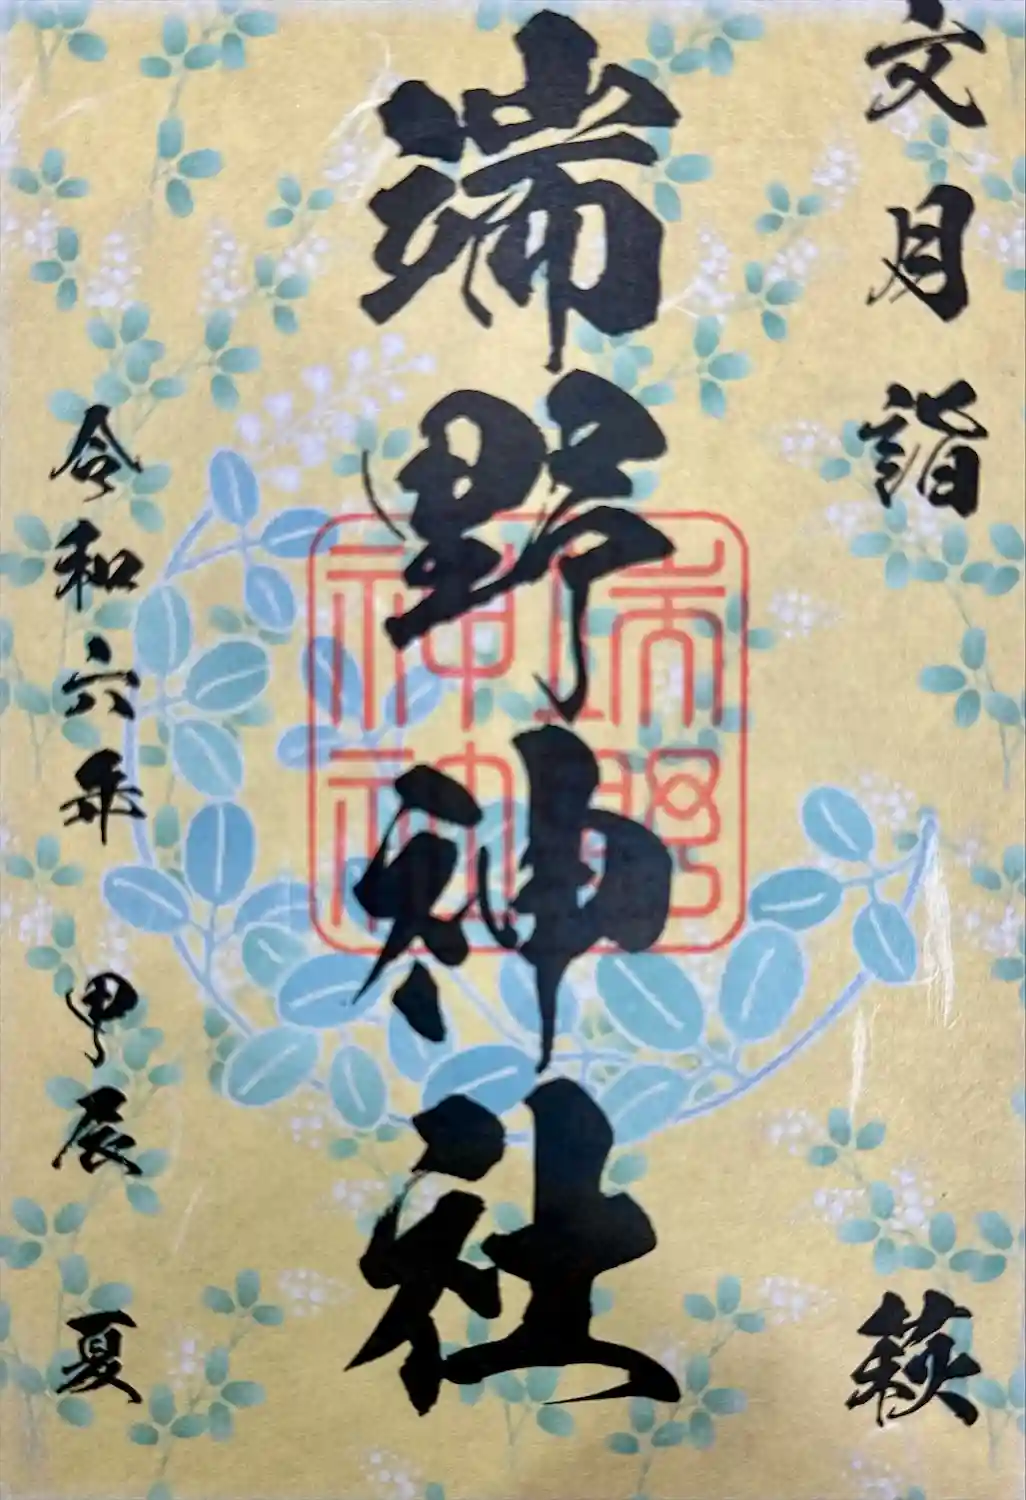 文月詣 萩
端野神社
端野神社
令和六年 甲辰 夏